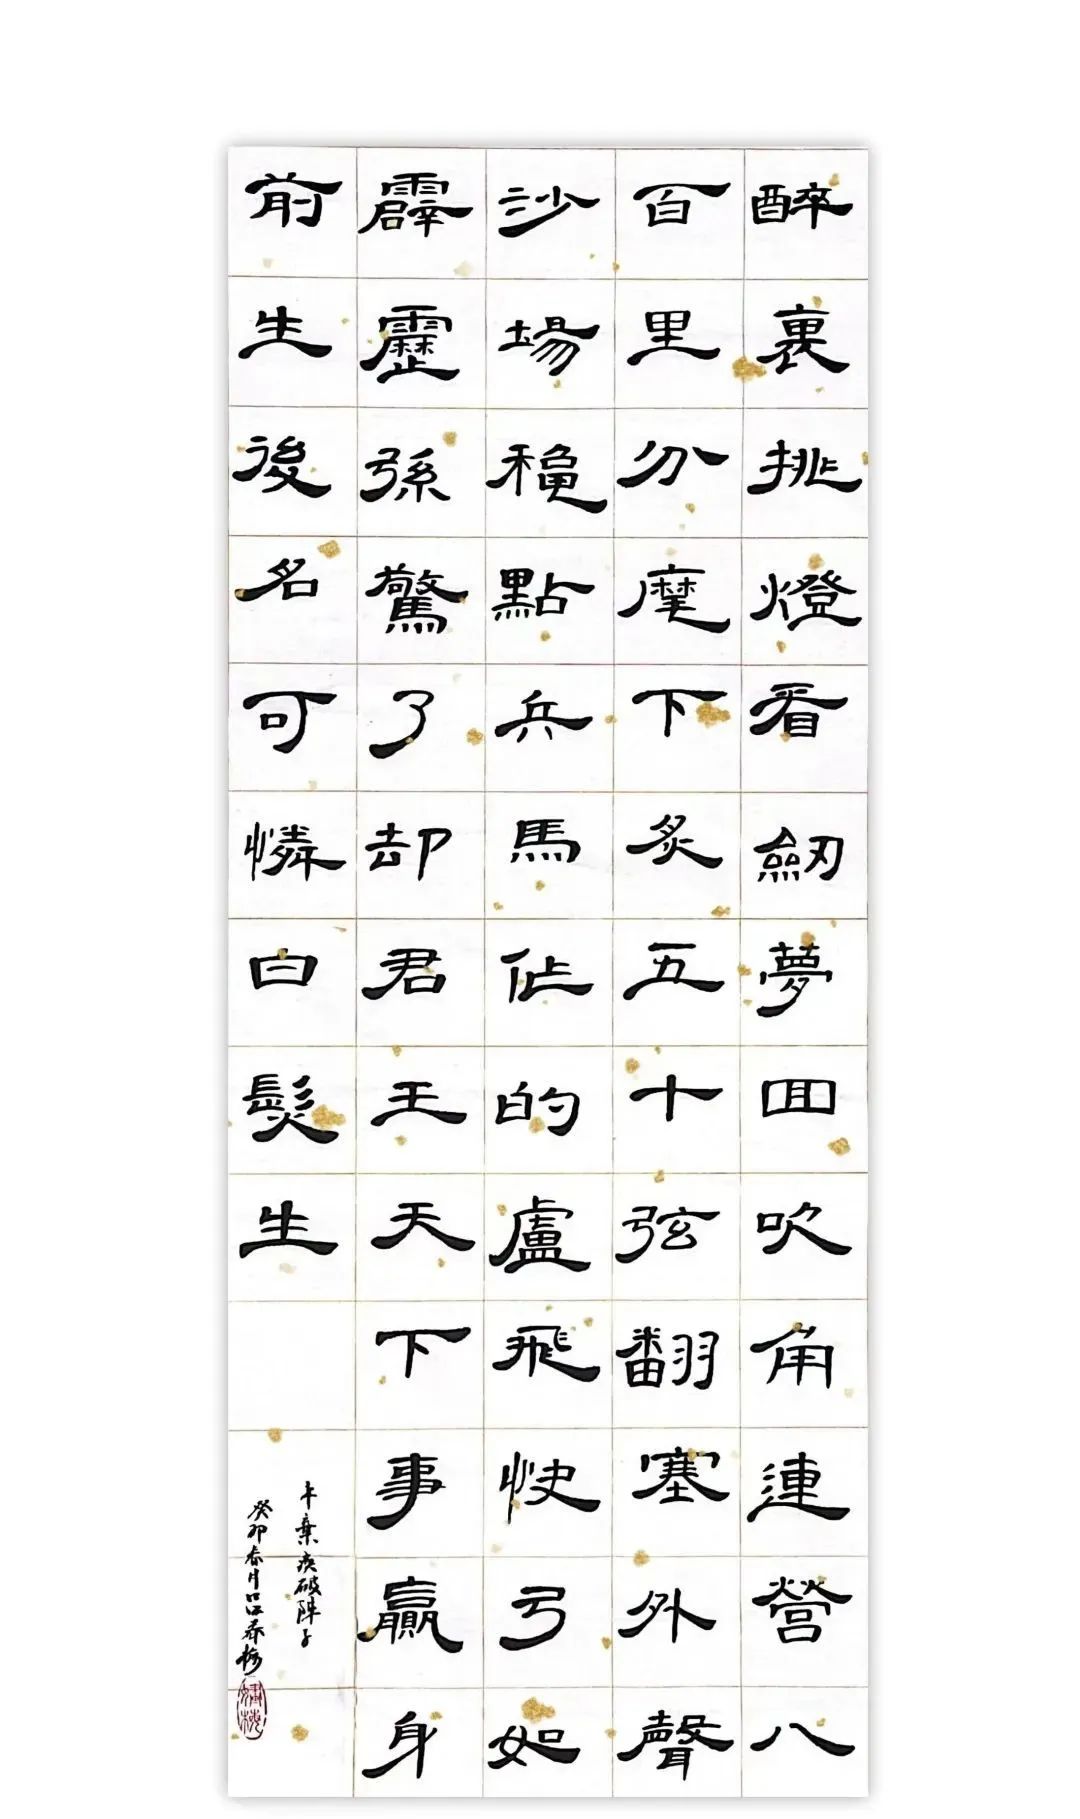 醉裏挑燈看劒夢回吹角連營八
百里分麾下炙五十弦翻塞外聲
沙場穐點兵馬作的盧飛快弓如
霹靂弦驚了却君王天下事贏身
前生後名可憐白髮生
辛棄疾破陣子
癸卯春月